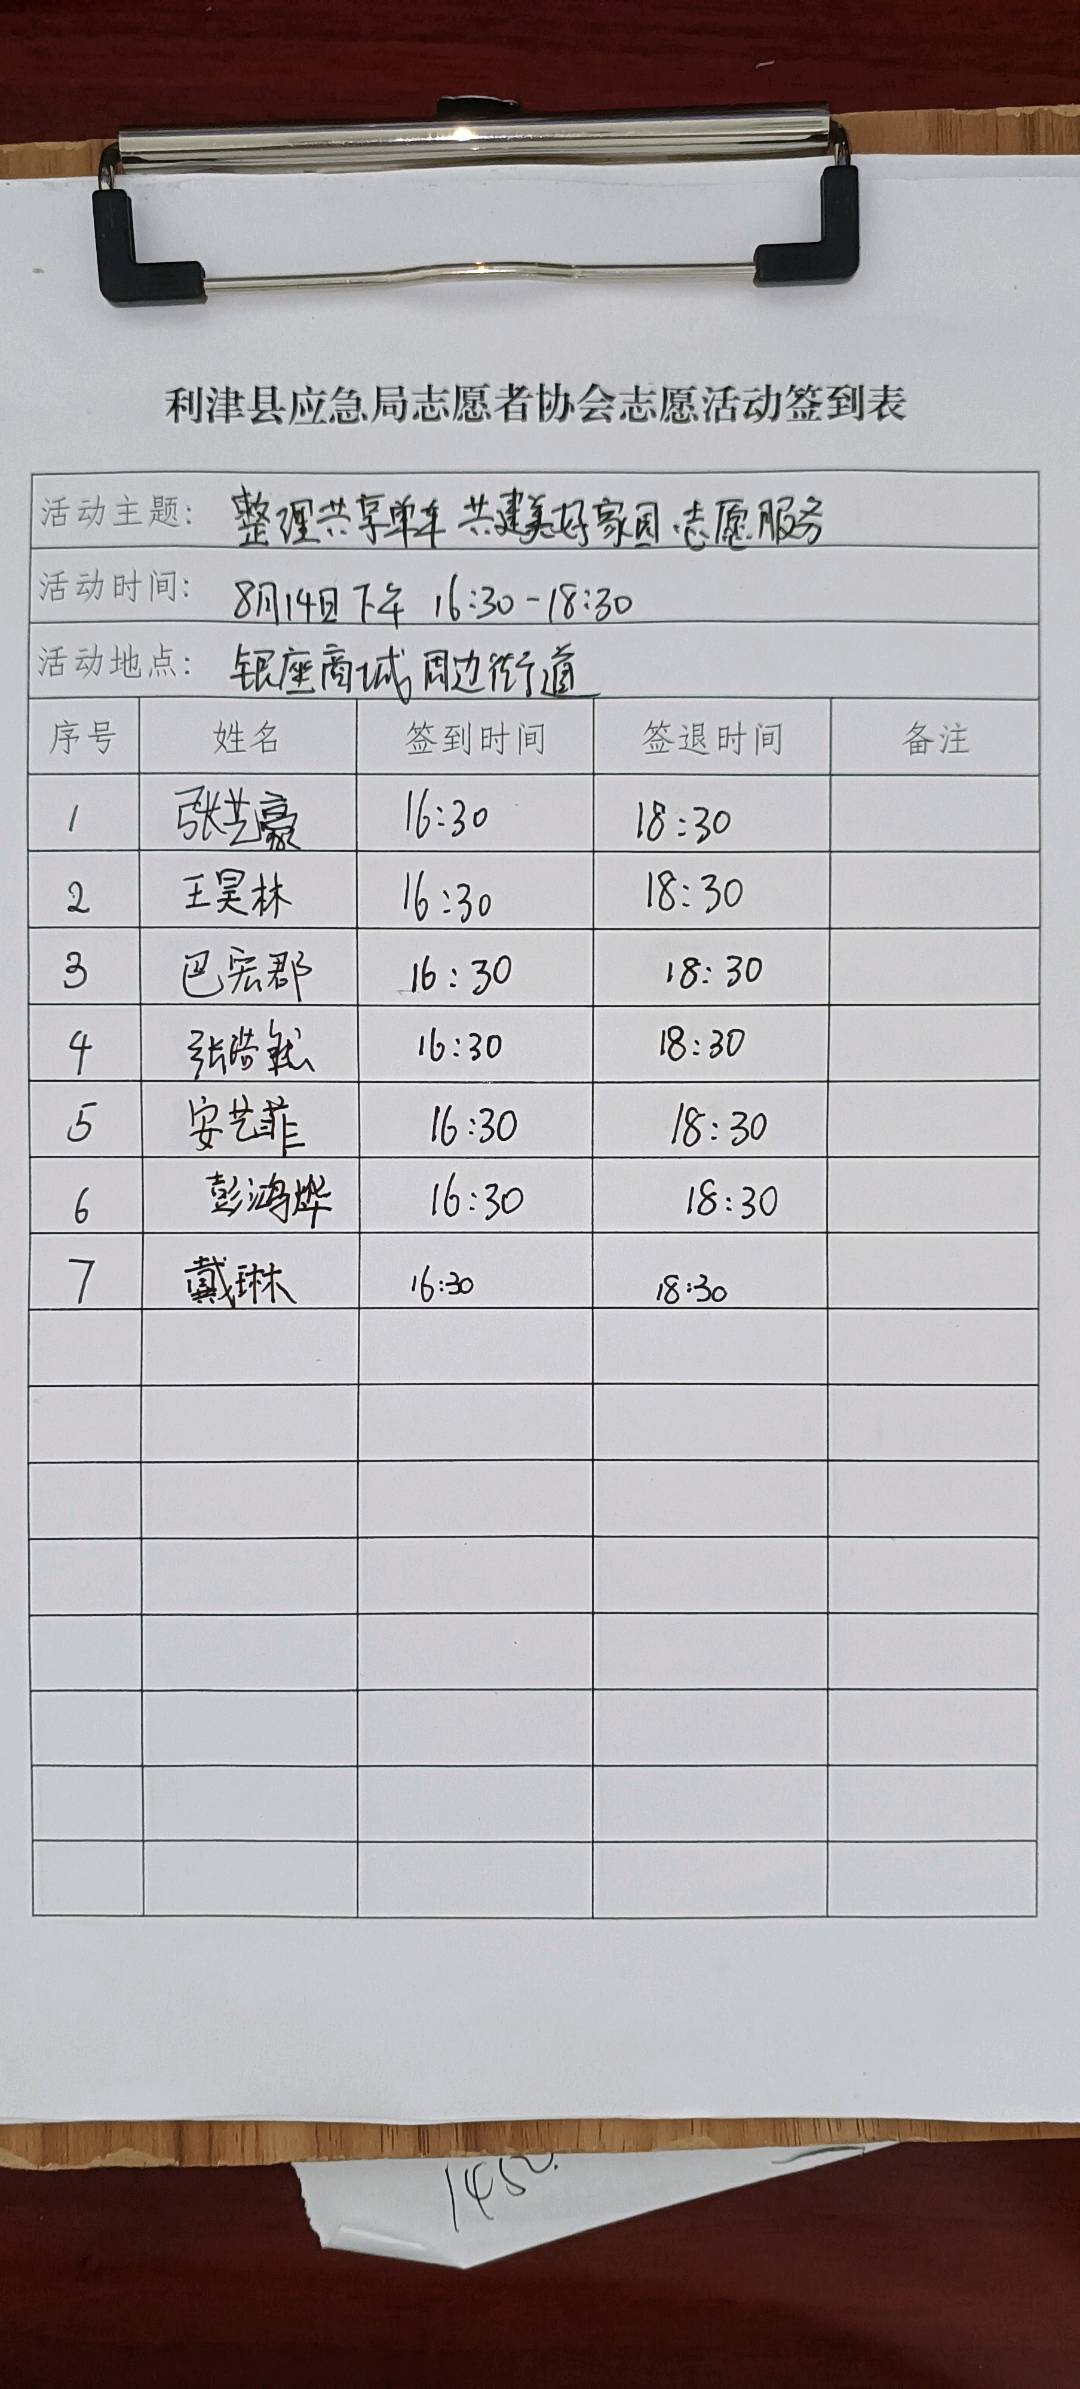 利津县应急局志愿者协会志愿活动签到表
活动主题: 整理共享单车 共建美好家园 志愿服务
活动时间: 8月14日下午 16:30-18:30
活动地点: 银座商城周边街道
序号 姓名 签到时间 签退时间 备注
1 张艺豪 16:30 18:30
2 王昊林 16:30 18:30
3 巴宏郡 16:30 18:30
4 张浩 16:30 18:30
5 安艺菲 16:30 18:30
6 彭鸿烨 16:30 18:30
7 戴琳 16:30 18:30